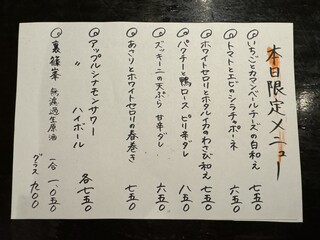 本日限定メニュー
いちごとカマンベールチーズの白和え 七五〇
トマトとエビのシラチャポーネ 六五〇
ホワイトセロリとホタルイカのわさび和え 七五〇
パクチーと鴨ロース ピリ辛ダレ 八五〇
ズッキーニの天ぷら 甘辛ダレ 六五〇
あさりとホワイトセロリの春巻き 七五〇
アップルシナモンサワー
〃 ハイボール 各七五〇
裏篠峯 無濾過生原酒 一合 一、〇五〇
グラス 九〇〇